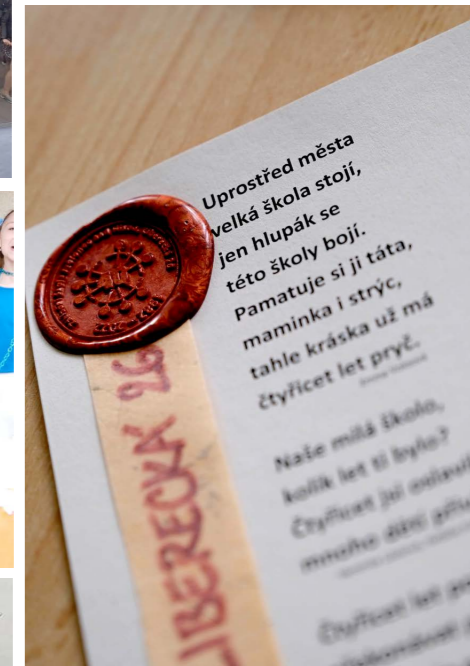 Uprostřed města
velká škola stojí,
jen hlupák se
této školy bojí.
Pamatuje si ji táta,
maminka i strýc,
tahle kráska už má
čtyřicet let pryč.
Naše milá školo,
kolik let ti bylo?
Čtyřicet jsi
mnoho dětí
Čtyřicet let
LIBERECKÁ 26